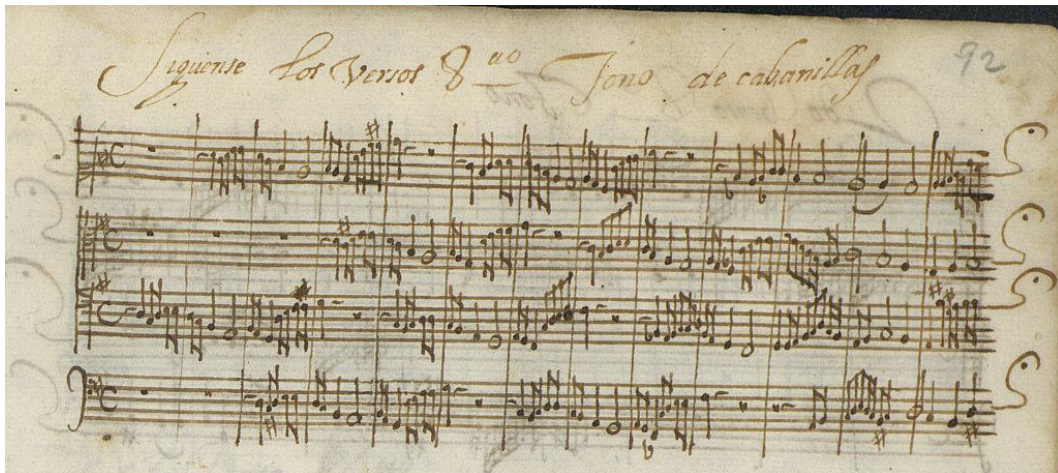 Siguense los Versos 8uo Tono de cabanillas
92